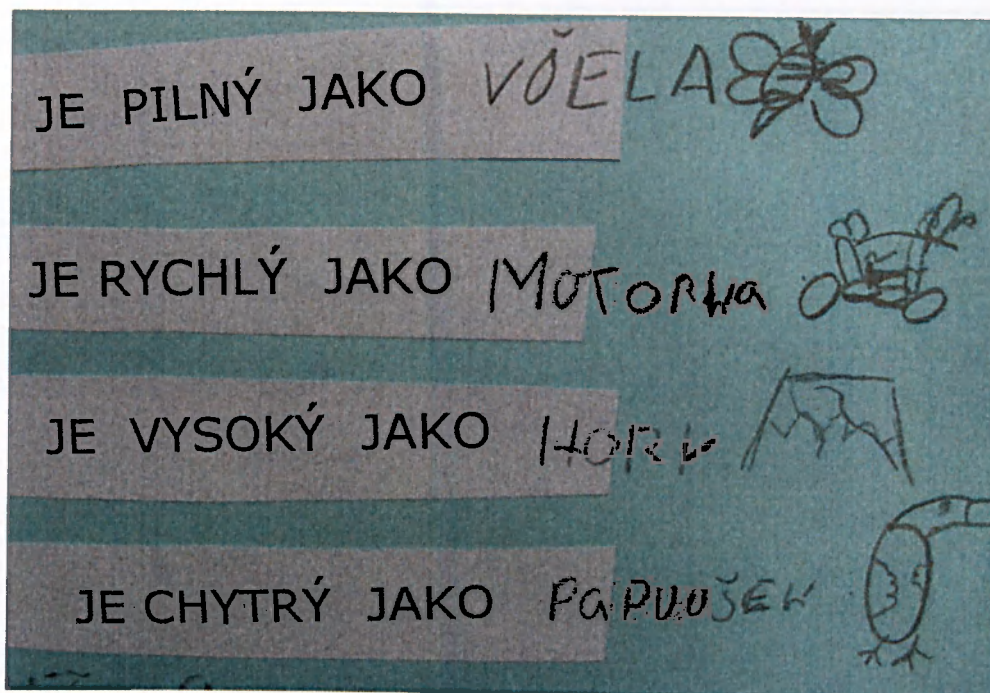 JE PILNÝ JAKO VČELA
JE RYCHLÝ JAKO MOTORKA
JE VYSOKÝ JAKO
JE CHYTRÝ JAKO